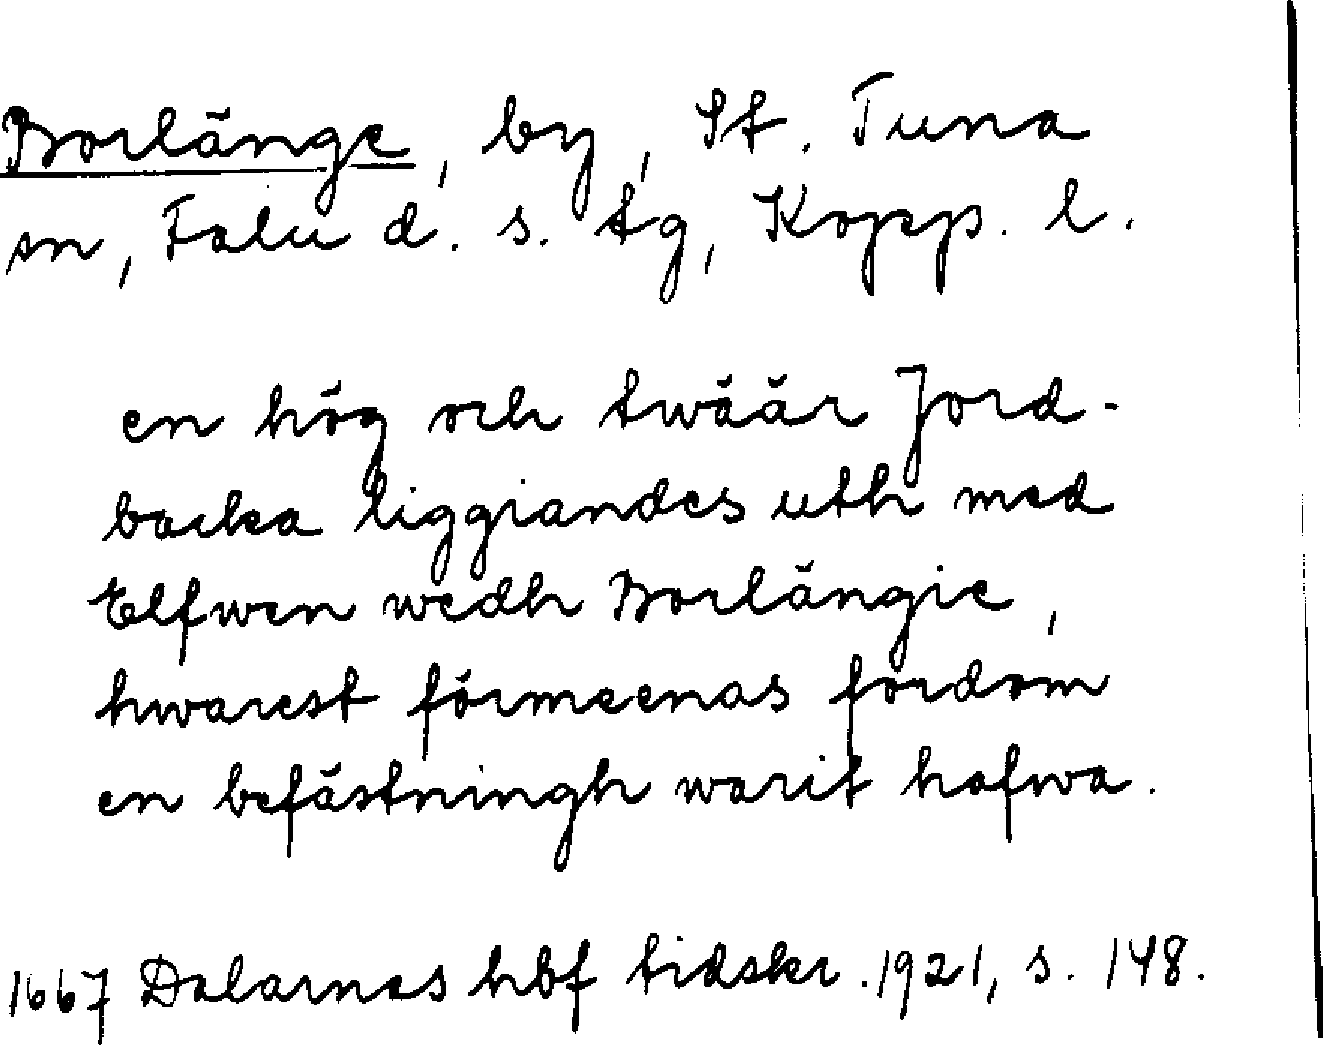 Borlänge, by, St. Tuna
sn, Falu d. s. tg, Kopp. l.
en hög och twäär Jord-
backa liggiandes uth med
Elfwen wedh Borlängie,
hwarest förmeenas fordom
en befästningh warit hafwa.
1667 Dalarnas hbf tidskr. 1921, s. 148.